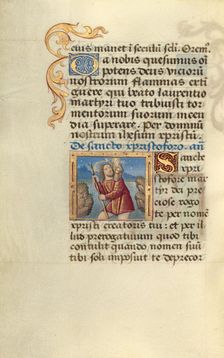 ctus manet i seculu seli. Orem?
Da nobis quesumus oi
potens deus vicioru
nostrorum flammas exti
guere qui beato laurentio
martyri tuo tribuisti tor
mentorum suorum incen
dia superare. Per dominu
nostrum ihesum xpristu.
De sancto xpristoforo. an
Sancte
xpristo
fore mar
tyr dei
preciose rogo
te per nome
xpristi creatoris tui: et per il
lud prerogatiuum quod tibi
contulit quando nomen suu
tibi soli imposuit te deprecor